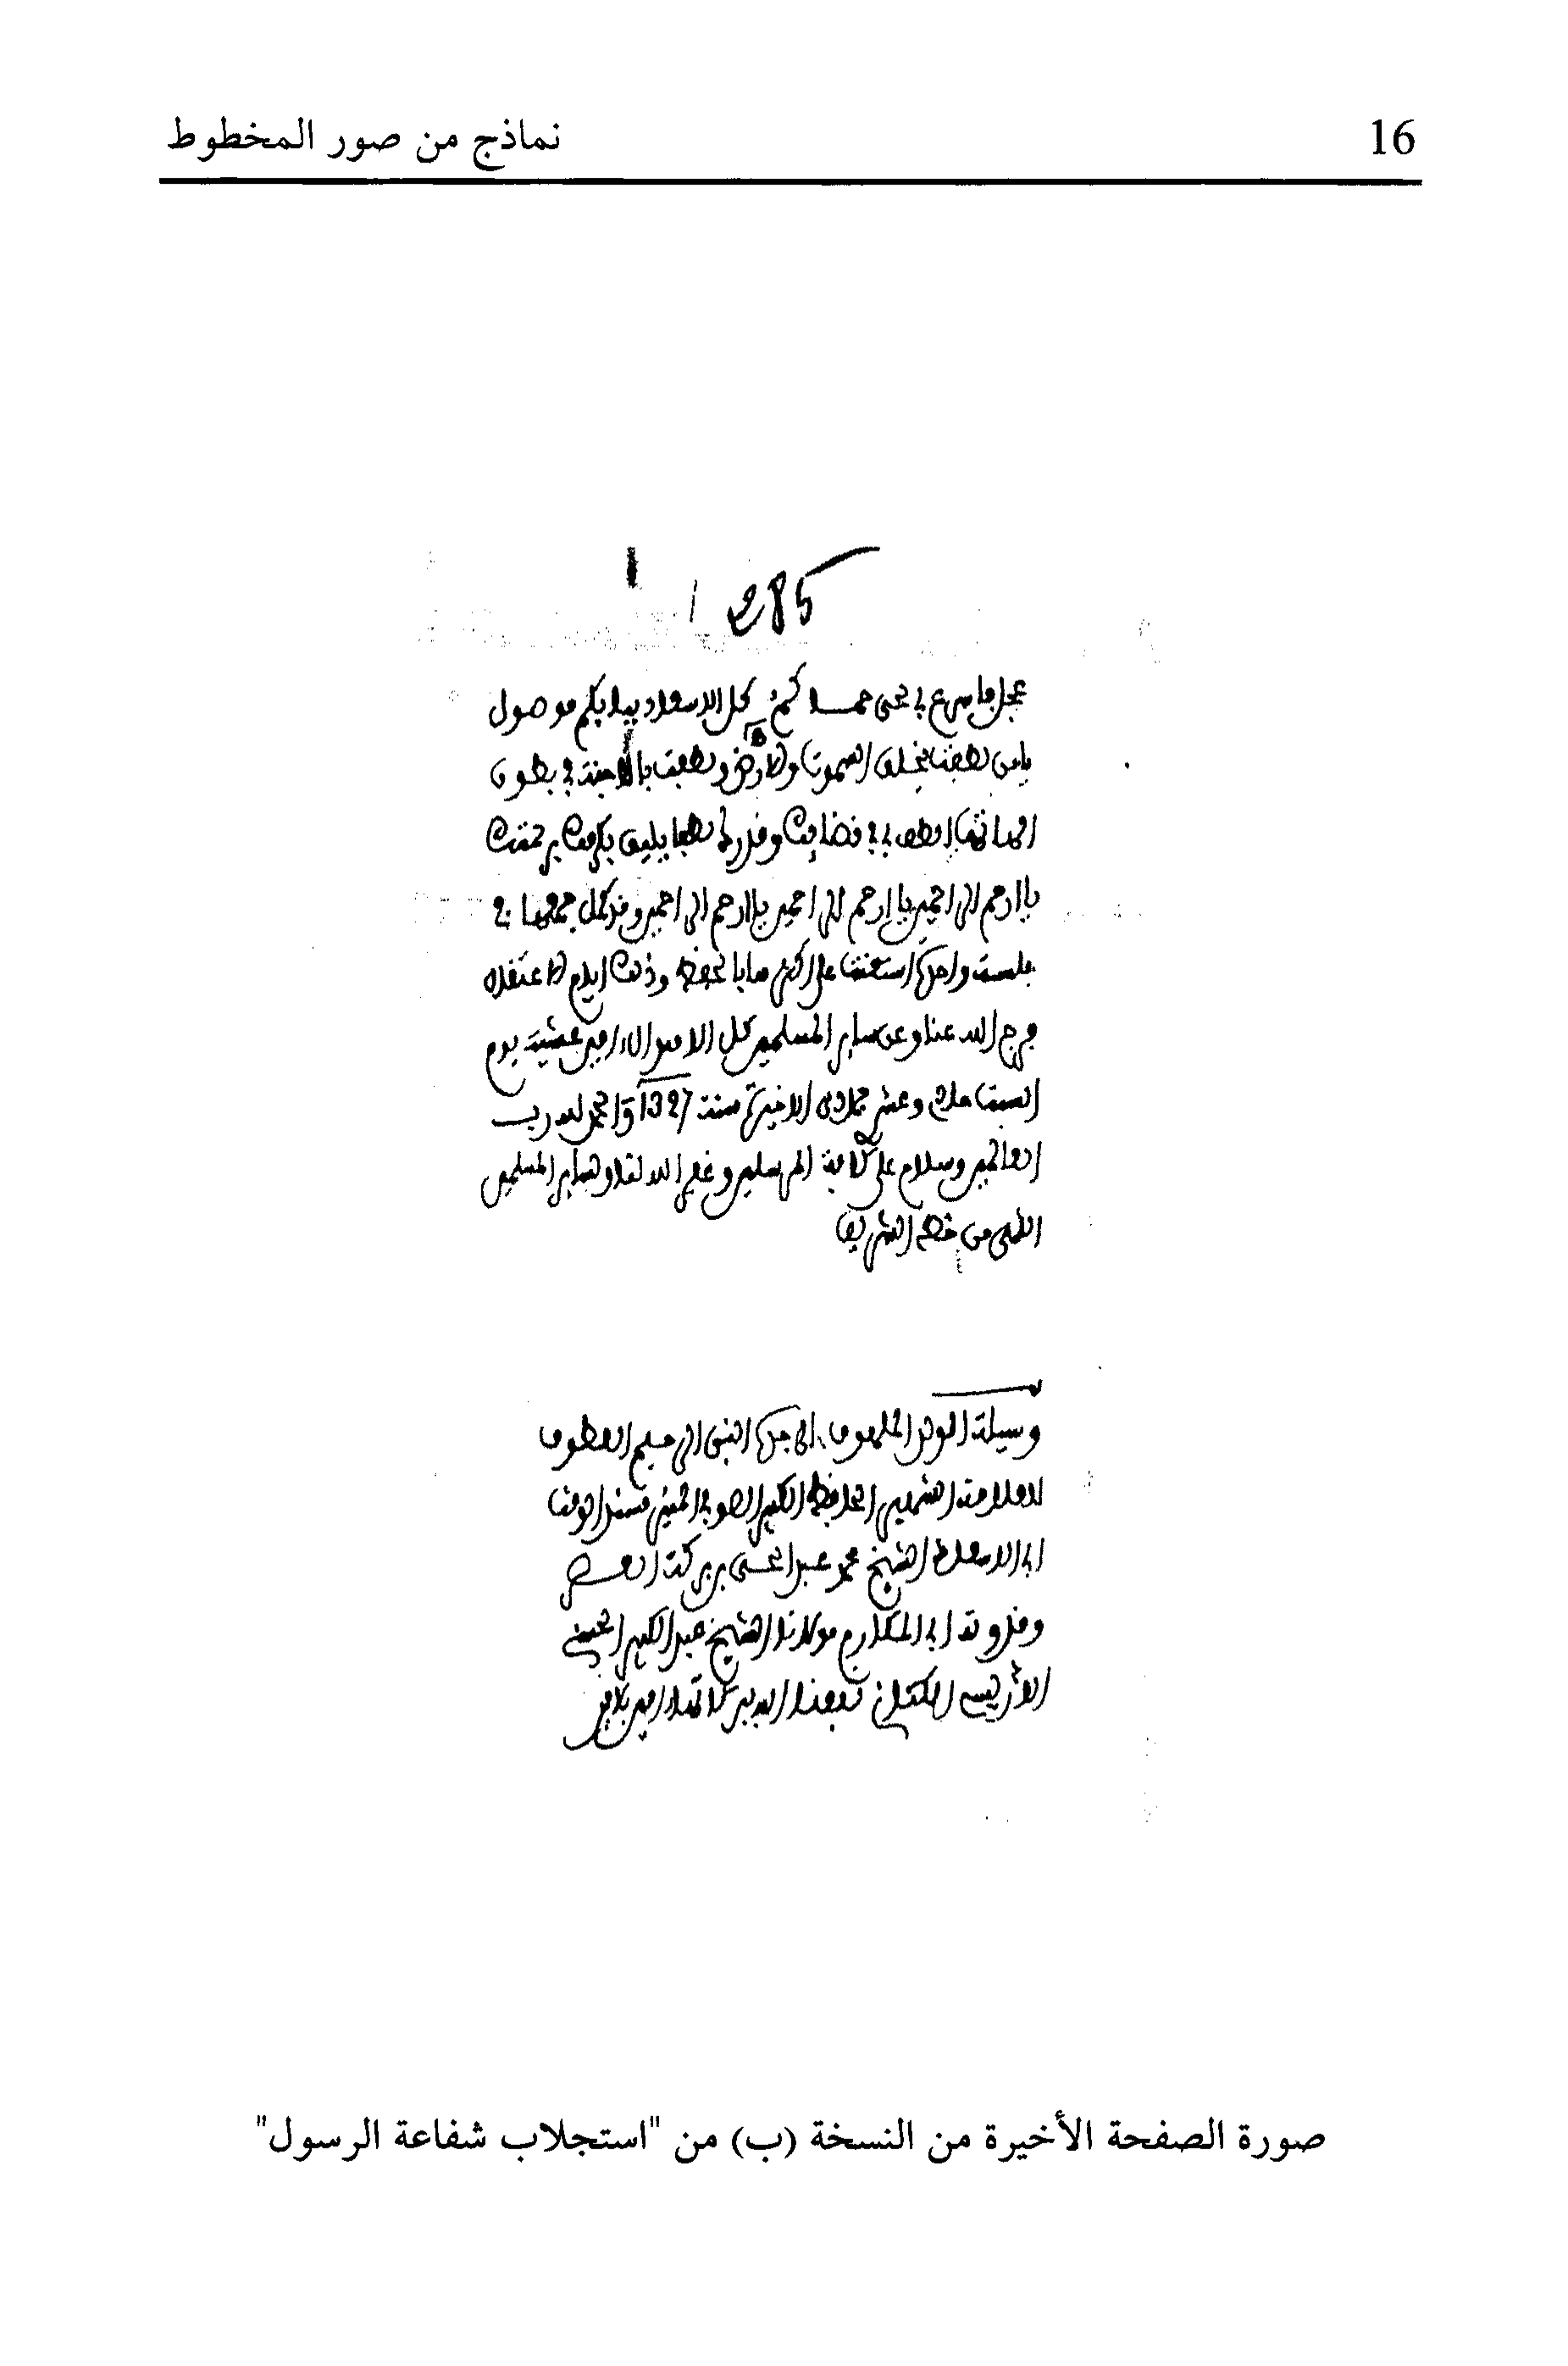 16 نماذج من صور المخطوط
285
عجل باسرع يا محي كل الاسعاد ببابكم موصول
يا من لطفت بخلق السموت والارض ولطفت بالاجنة في بطون
امهاتها الطف بنا في قضايك وقدرك لطفا يليق بكرمك برحمتك
يا ارحم الراحمين يا ارحم الراحمين يا ارحم الراحمين وقد كمل جمعها في
جلسة واحدة استعنت على اكثر ما بالحفظ وذلك ايام الاعتقال
فرج الله عنا وعن ساير المسلمين كل الاهوال ءامين عشية يوم
السبت حادي وعشر جمادى الاخيرة سنة 1327 والحمد لله رب
العالمين وسلام على كافة المرسلين وغفر الله لنا ولساير المسلمين
انتهى من خطه الشريف
وسيلة الولد الملهوف الى جده النبي الرحيم العطوف
للعلامة الشهير الحافظ الكبير الصوفي المحدث مسند الوقت
ابي الاسعاد الشيخ محمد عبد الحي بن بركة العصر
وقدوته ابي المكارم مولانا الشيخ عبد الكبير الحسني
الادريسي الكتاني نفعنا الله ببركاتهم ءامين
صورة الصفحة الأخيرة من النسخة (ب) من "استجلاب شفاعة الرسول"